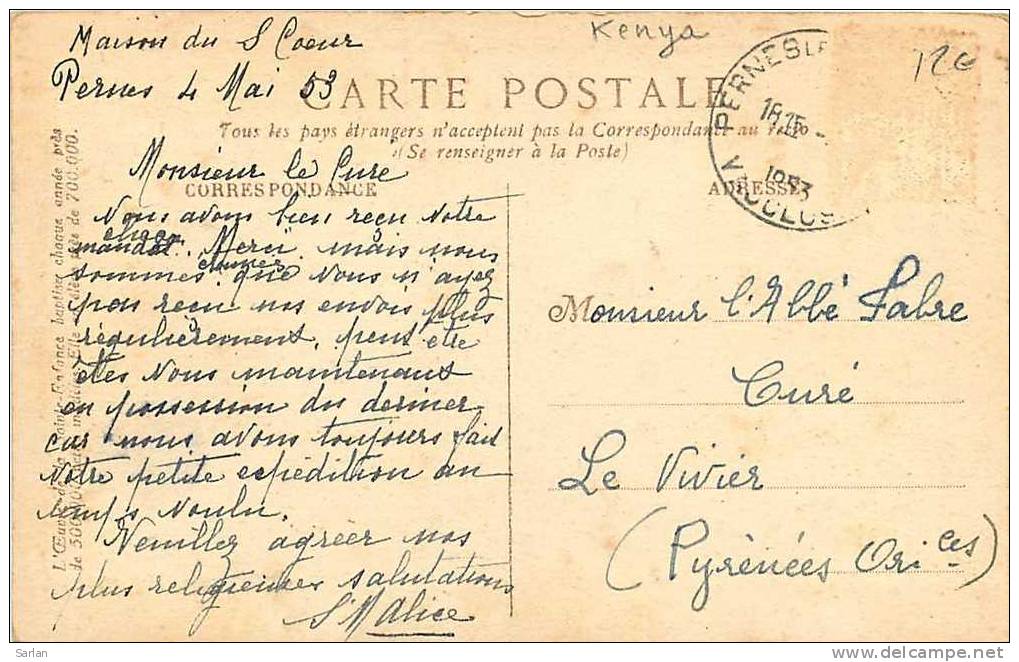 Maison du S Coeur
Kenya
12€
Pernes 4 Mai 53
CARTE POSTALE
Tous les pays étrangers n'acceptent pas la Correspondance au recto
(Se renseigner à la Poste)
PERNES LE
18 15
1953
VAUCLUS
Monsieur le Curé
CORRESPONDANCE
ADRESSE
Nous avons bien reçu votre
mandat. Merci mais nous
sommes étonnées que vous n'ayez
pas reçu nos envois plus
régulièrement, peut être
êtes vous maintenant
en possession du dernier
car nous avons toujours fait
votre petite expédition au
temps voulu.
Veuillez agréer nos
plus religieuses salutations
Sr M Alice
Monsieur l'Abbé Fabre
Curé
Le Vivier
(Pyrénées Ori ces)
L'Œuvre de la Sainte-Enfance baptise chaque année près
de 500.000 de 700.000.
Sarlan
www.delcampe.net